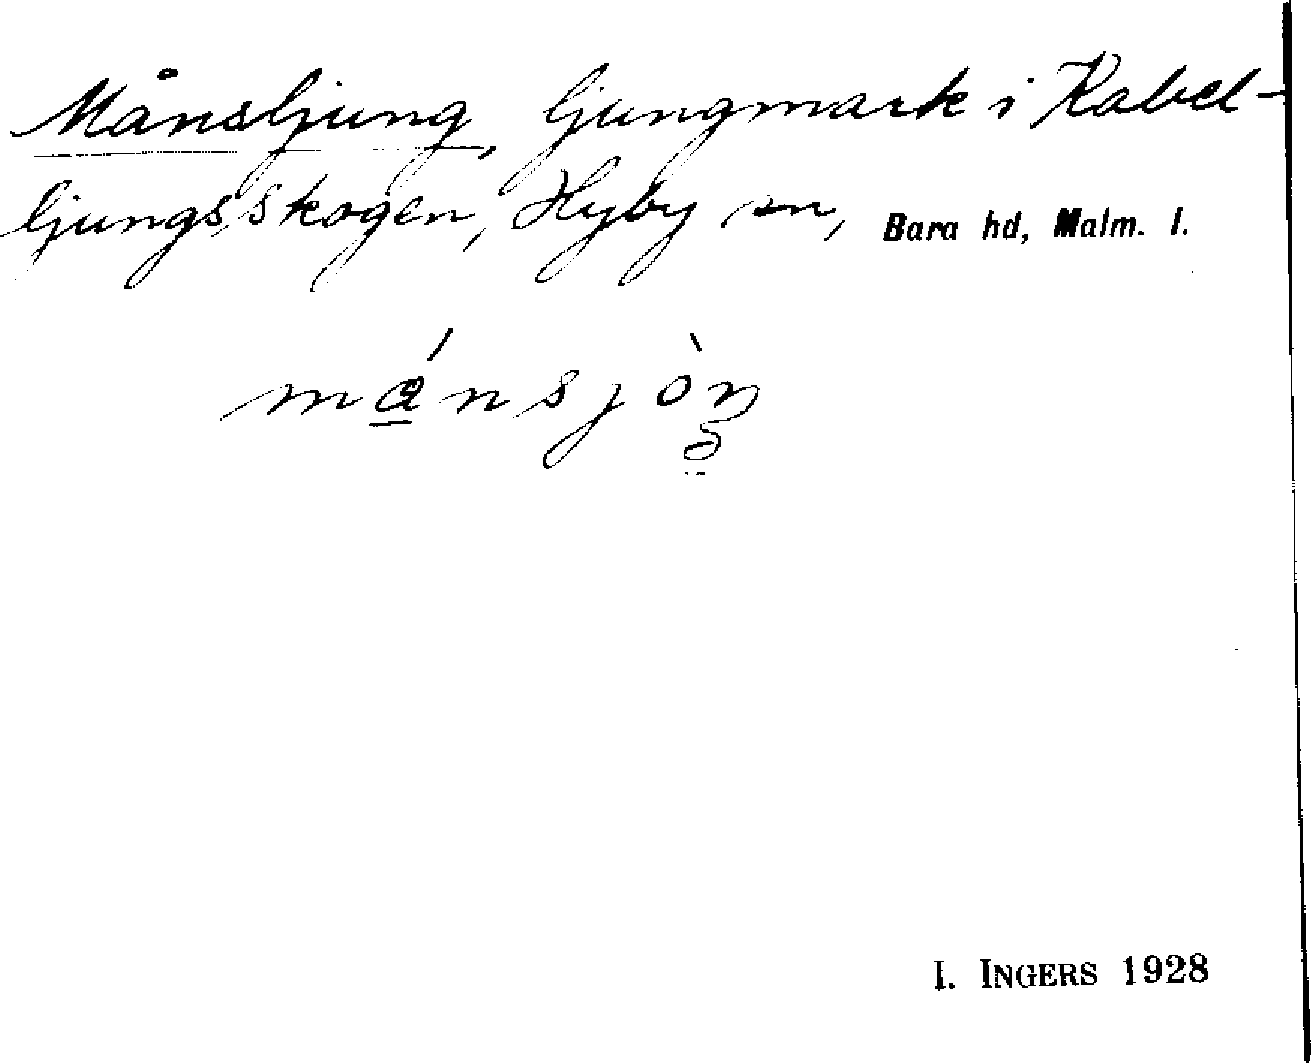 Månsljung, ljungmark i Kabel-
ljungsskogen, Hyby sn, Bara hd, Malm. l.
I. INGERS 1928